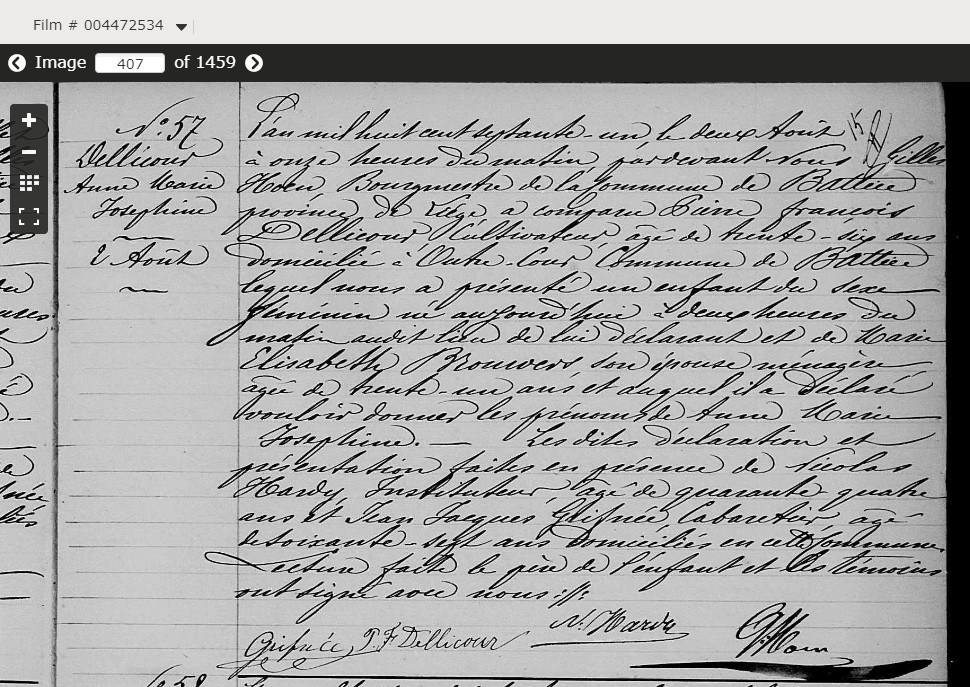 Film # 004472534
Image 407 of 1459
No. 57
Dellicour
Anne Marie
Josephine
2 Août
L'an mil huit cent septante-un, le deux Août
à onze heures du matin, pardevant Nous Gilles
Bourgmestre de la Commune de Battice
province de Liége a comparu Pierre françois
Dellicour, Cultivateur, âgé de trente-six ans
domicilié à Outre-Cour, Commune de Battice
lequel nous a présenté un enfant du sexe
féminin né aujourd'hui à deux heures du
matin audit lieu de lui déclarant et de Marie
Elisabeth Brouwers, son épouse ménagère
âgée de trente-un ans et auquel il a déclaré
vouloir donner les prénoms de Anne Marie
Josephine. — Les dites déclaration et
présentation faites en présence de Nicolas
Hardy, Instituteur, âgé de quarante-quatre
ans et Jean Jacques Grifnée, Cabaretier, âgé
de soixante-sept ans domiciliés en cette Commune.
Lecture faite le père de l'enfant et les témoins
ont signé avec nous
Grifnée P. F. Dellicour N. Hardy